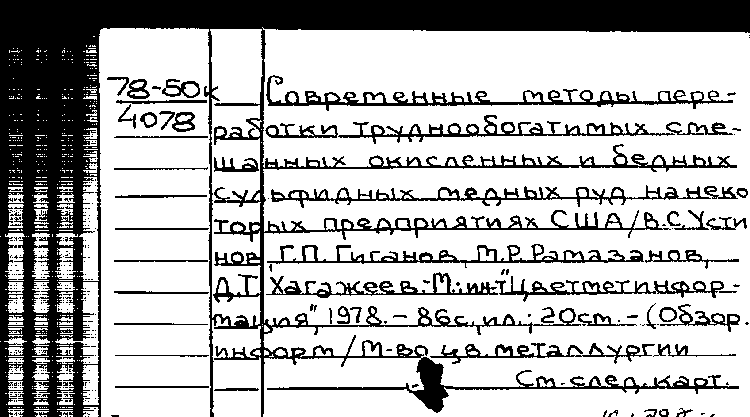 78-50к Современные методы пере-
4078 работки труднообогатимых сме-
шанных окисленных и бедных
сульфидных медных руд на неко
торых предприятиях США/В.С.Усти
нов, Г.П. Гиганов, М.Р. Рамазанов,
Д.Т. Хагажеев.-М.: ин-т "Цветметинфор-
мация", 1978.- 86с., ил.; 20см. - (Обзор.
информ/М-во цв. металлургии
См. след. карт.